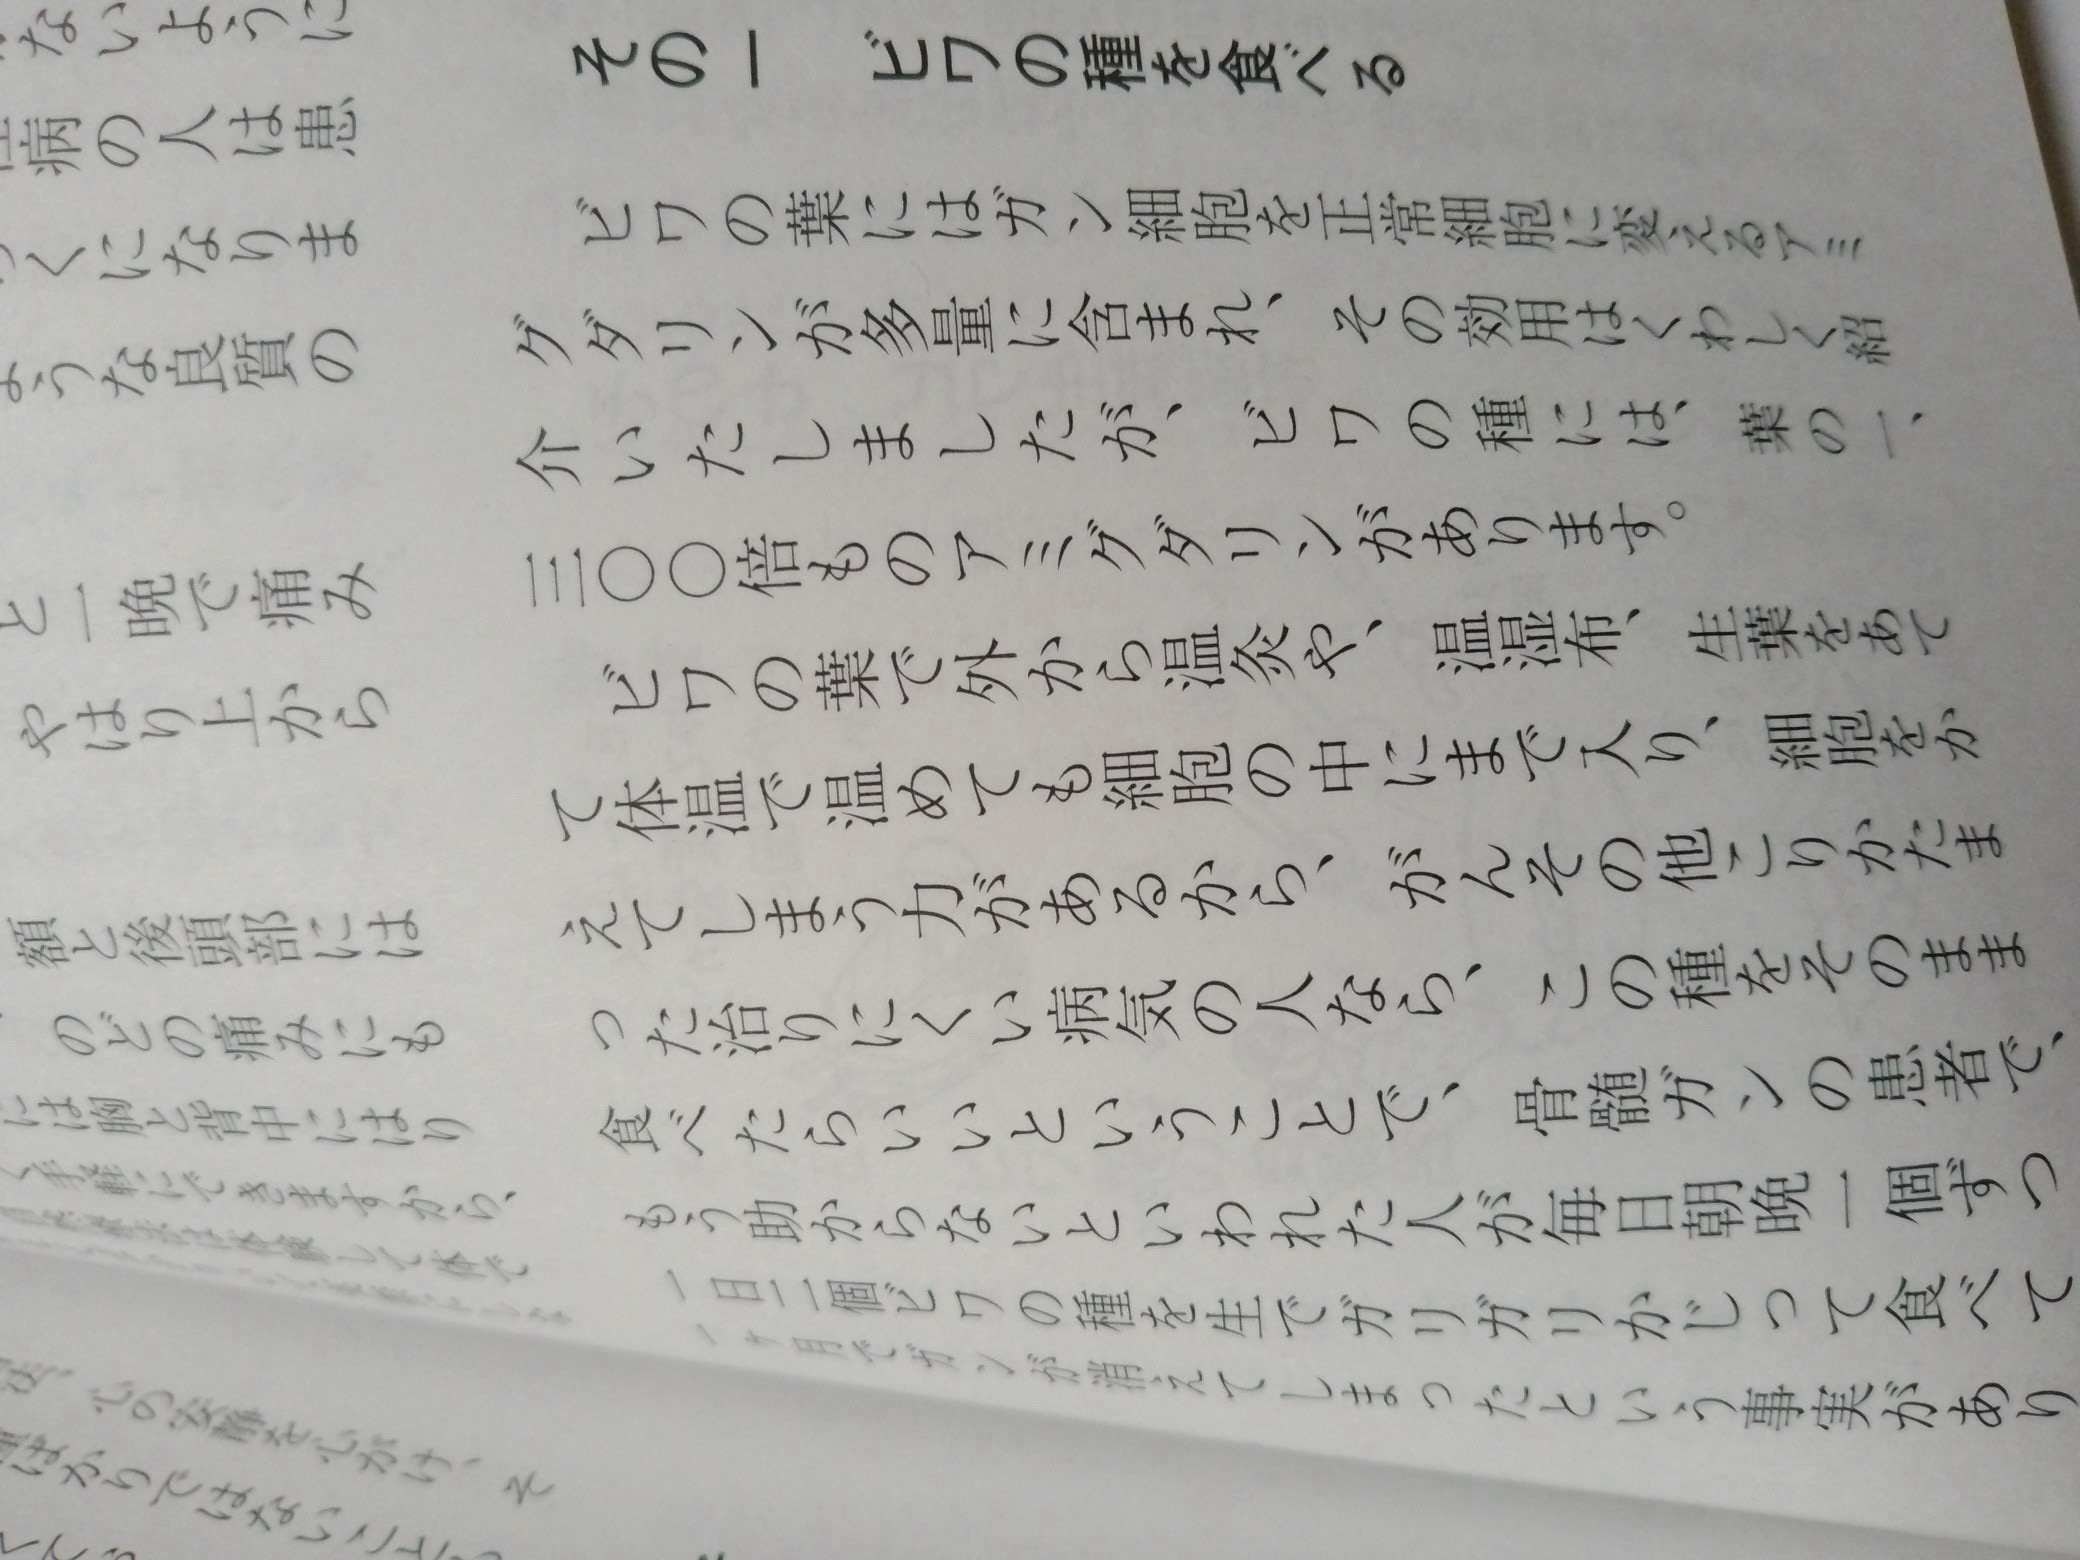 ないように
病の人は患
くになりま
ような良質の
と一晩で痛み
やはり上から
額と後頭部には
のどの痛みにも
には胸と背中にはり
手軽にできますから、
その一　ビワの種を食べる
ビワの葉にはガン細胞を正常細胞に変えるアミ
グダリンが多量に含まれ、その効用はくわしく紹
介いたしましたが、ビワの種には、葉の一、
三〇〇倍ものアミグダリンがあります。
ビワの葉で外から温灸や、温湿布、生葉をあて
て体温で温めても細胞の中にまで入り、細胞をか
えてしまう力があるから、がんその他こりかたま
った治りにくい病気の人なら、この種をそのまま
食べたらいいということで、骨髄ガンの患者で、
もう助からないといわれた人が毎日朝晩一個ずつ
一日二個ビワの種を生でガリガリかじって食べて
一ヶ月でガンが消えてしまったという事実があり
心の安静を心がけ、そ
ばかりではないこと